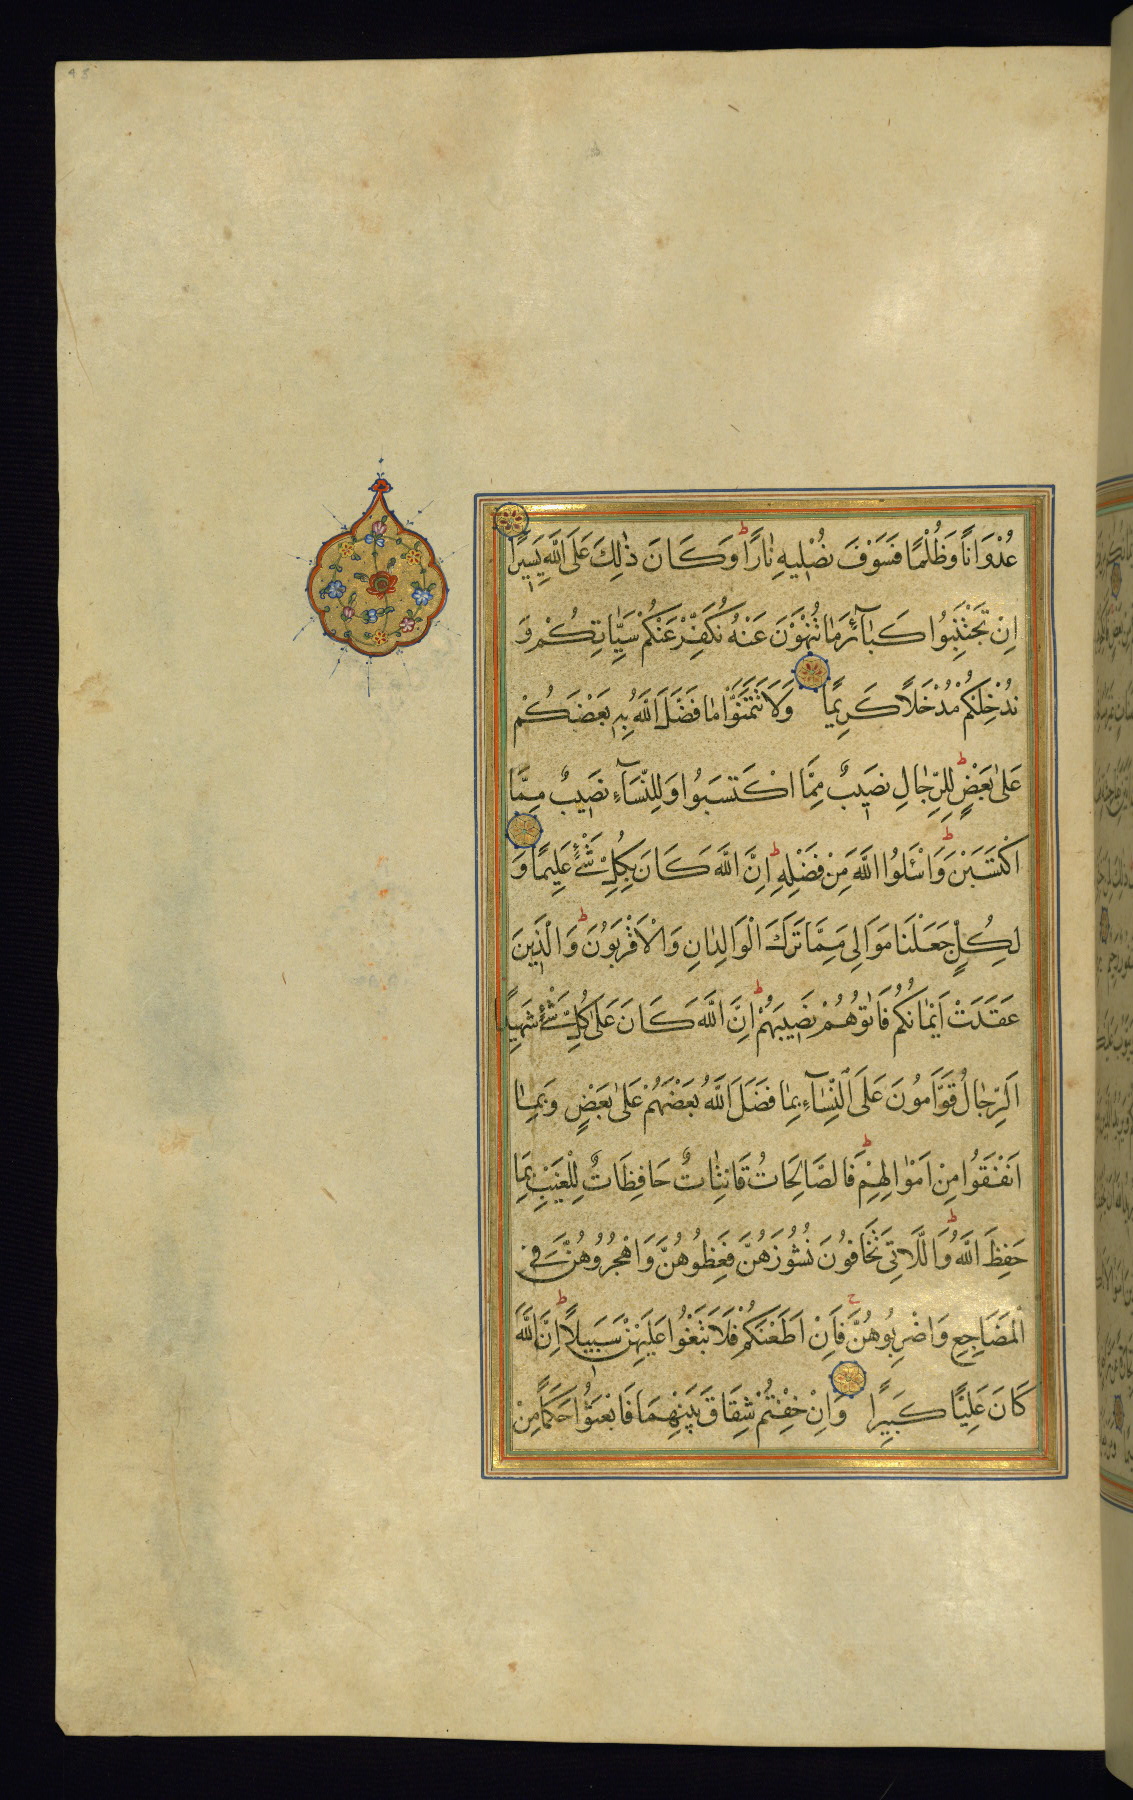 عُدْوَانًا وَظُلْمًا فَسَوْفَ نُصْلِيهِ نَارًا ط وَكَانَ ذٰلِكَ عَلَى اللّٰهِ يَسِيرًا
اِنْ تَجْتَنِبُوا كَبَآئِرَ مَا تُنْهَوْنَ عَنْهُ نُكَفِّرْ عَنْكُمْ سَيِّاٰتِكُمْ وَ
نُدْخِلْكُمْ مُدْخَلًا كَرِيمًا وَلَا تَتَمَنَّوْا مَا فَضَّلَ اللّٰهُ بِهِ بَعْضَكُمْ
عَلٰى بَعْضٍ ط لِلرِّجَالِ نَصِيبٌ مِمَّا اكْتَسَبُوا وَلِلنِّسَآءِ نَصِيبٌ مِمَّا
اكْتَسَبْنَ ط وَاسْئَلُوا اللّٰهَ مِنْ فَضْلِهِ ط اِنَّ اللّٰهَ كَانَ بِكُلِّ شَيْءٍ عَلِيمًا وَ
لِكُلٍّ جَعَلْنَا مَوَالِيَ مِمَّا تَرَكَ الْوَالِدَانِ وَالْاَقْرَبُونَ ط وَالَّذِينَ
عَقَدَتْ اَيْمَانُكُمْ فَاٰتُوهُمْ نَصِيبَهُمْ ط اِنَّ اللّٰهَ كَانَ عَلٰى كُلِّ شَيْءٍ شَهِيدًا
اَلرِّجَالُ قَوَّامُونَ عَلَى النِّسَآءِ بِمَا فَضَّلَ اللّٰهُ بَعْضَهُمْ عَلٰى بَعْضٍ وَبِمَا
اَنْفَقُوا مِنْ اَمْوَالِهِمْ ط فَالصَّالِحَاتُ قَانِتَاتٌ حَافِظَاتٌ لِلْغَيْبِ بِمَا
حَفِظَ اللّٰهُ ط وَاللَّاتِي تَخَافُونَ نُشُوزَهُنَّ فَعِظُوهُنَّ وَاهْجُرُوهُنَّ فِي
الْمَضَاجِعِ وَاضْرِبُوهُنَّ ج فَاِنْ اَطَعْنَكُمْ فَلَا تَبْغُوا عَلَيْهِنَّ سَبِيلًا ط اِنَّ اللّٰهَ
كَانَ عَلِيًّا كَبِيرًا وَاِنْ خِفْتُمْ شِقَاقَ بَيْنِهِمَا فَابْعَثُوا حَكَمًا مِنْ